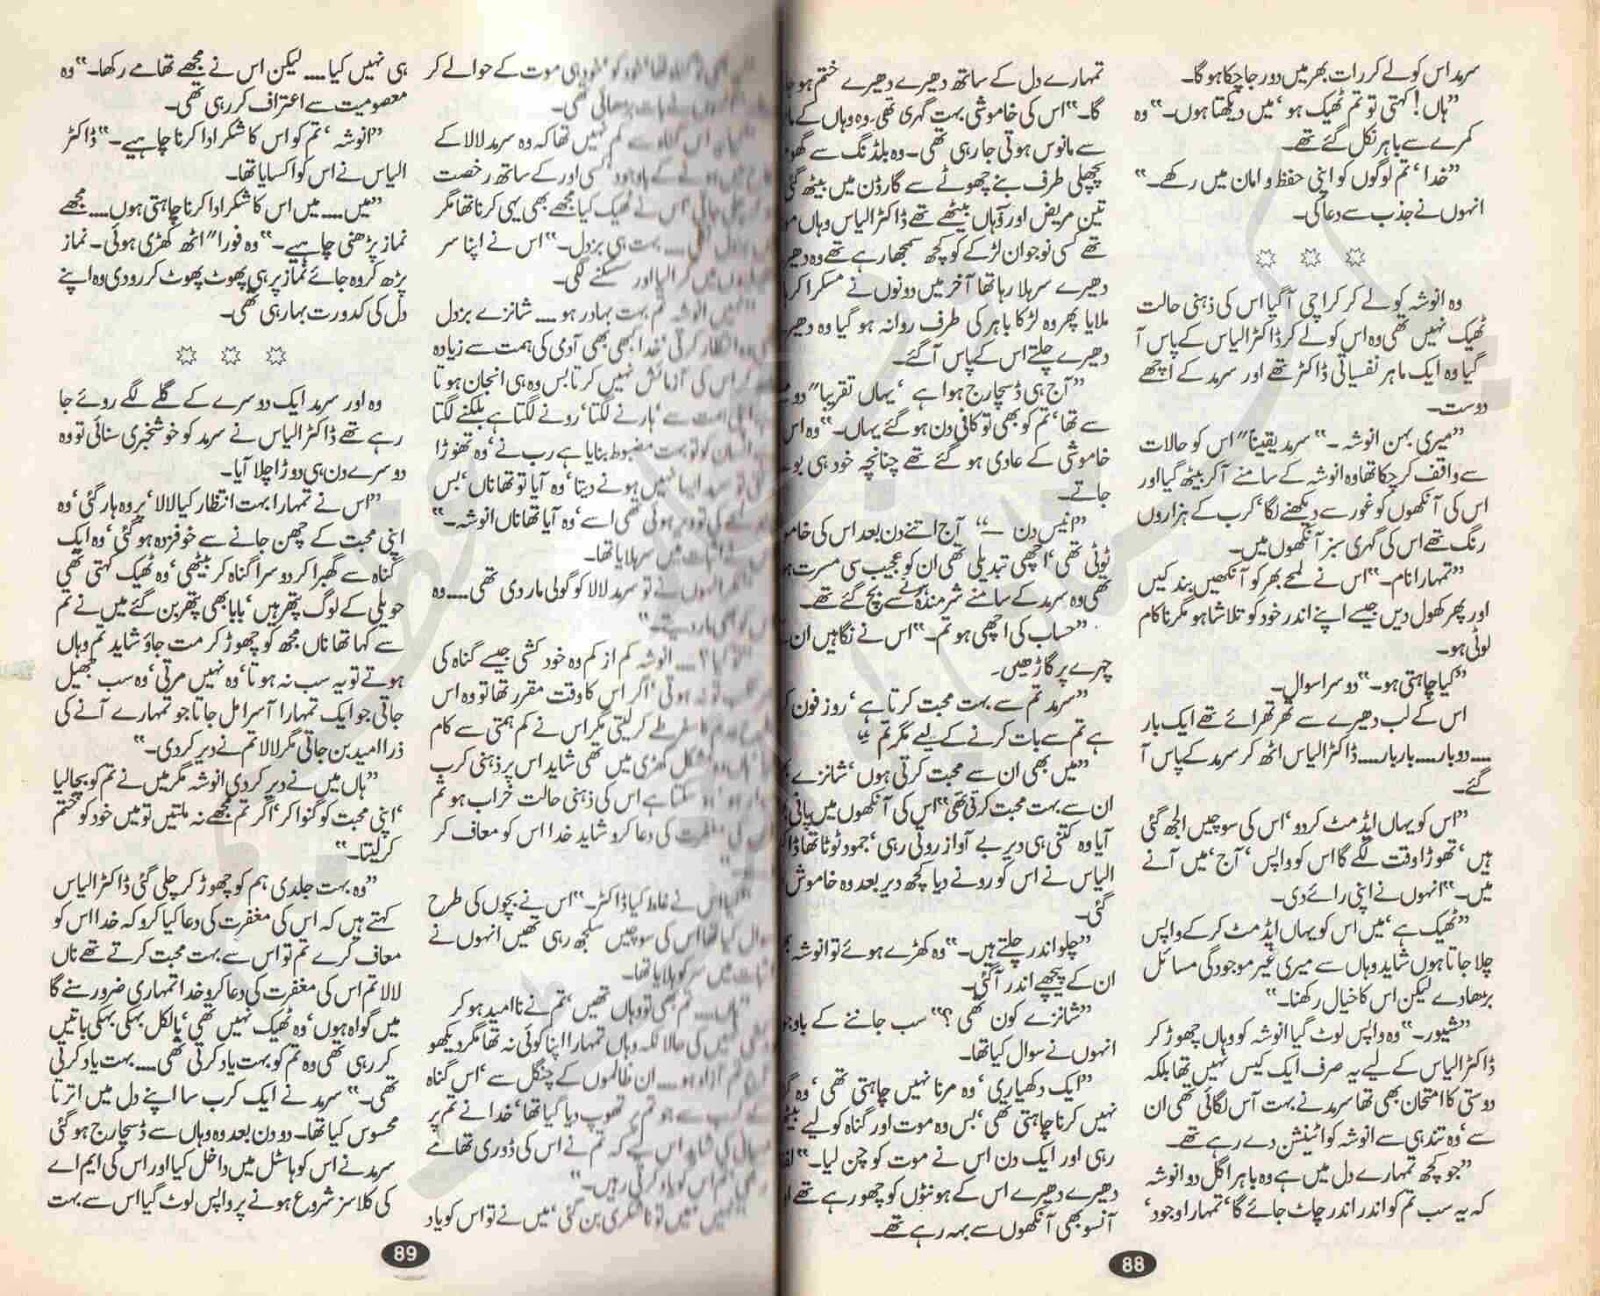 سرمد اس کو لے کر رات بھر میں دور جا چکا ہو گا۔
”ہاں! کہتی تو تم ٹھیک ہو‘ میں دیکھتا ہوں۔“ وہ
کمرے سے باہر نکل گئے تھے۔
”خدا‘ تم لوگوں کو اپنی حفظ و امان میں رکھے۔“
انہوں نے جذب سے دعا کی۔
وہ انوشہ کو لے کر کراچی آ گیا اس کی ذہنی حالت
ٹھیک نہیں تھی وہ اس کو لے کر ڈاکٹر الیاس کے پاس آ
گیا وہ ایک ماہر نفسیاتی ڈاکٹر تھے اور سرمد کے اچھے
دوست۔
”میری بہن انوشہ۔“ سرمد یقیناً اس کو حالات
سے واقف کر چکا تھا وہ انوشہ کے سامنے آ کر بیٹھ گیا اور
اس کی آنکھوں کو غور سے دیکھنے لگا‘ کرب کے ہزاروں
رنگ تھے اس کی گہری سبز آنکھوں میں۔
”تمہارا نام۔“ اس نے لمحے بھر کو آنکھیں بند کیں
اور پھر کھول دیں جیسے اپنے اندر خود کو تلاشا ہو مگر ناکام
لوٹی ہو۔
”کیا چاہتی ہو۔“ دوسرا سوال۔
اس کے لب دھیرے سے تھرتھرائے تھے ایک بار
.... دو بار.... بار بار.... ڈاکٹر الیاس اٹھ کر سرمد کے پاس آ
گئے۔
”اس کو یہاں ایڈمٹ کر دو‘ اس کی سوچیں الجھ گئی
ہیں‘ تھوڑا وقت لگے گا اس کو واپس‘ آج‘ میں آنے
میں۔“ انہوں نے اپنی رائے دی۔
”ٹھیک ہے‘ میں اس کو یہاں ایڈمٹ کر کے واپس
چلا جاتا ہوں شاید وہاں سے میری غیر موجودگی مسائل
بڑھا دے لیکن اس کا خیال رکھنا۔“
”شیور۔“ وہ واپس لوٹ گیا انوشہ کو وہاں چھوڑ کر
ڈاکٹر الیاس کے لیے یہ صرف ایک کیس نہیں تھا بلکہ
دوستی کا امتحان بھی تھا سرمد نے بہت آس لگائی تھی ان
سے‘ وہ تندہی سے انوشہ کو اٹینشن دے رہے تھے۔
”جو کچھ تمہارے دل میں ہے وہ باہر اگل دو انوشہ
کہ یہ سب تم کو اندر اندر چاٹ جائے گا‘ تمہارا وجود‘
تمہارے دل کے ساتھ دھیرے دھیرے ختم ہو جا
گا۔“ اس کی خاموشی بہت گہری تھی وہ وہاں کے
سے مانوس ہوتی جا رہی تھی۔ وہ بلڈنگ سے
پچھلی طرف بنے چھوٹے سے گارڈن میں بیٹھ گئی
تین مریض اور وہاں بیٹھے تھے ڈاکٹر الیاس وہاں
تھے کسی نوجوان لڑکے کو کچھ سمجھا رہے تھے وہ
دھیرے سر ہلا رہا تھا آخر میں دونوں نے مسکرا کر
ملایا پھر وہ لڑکا باہر کی طرف روانہ ہو گیا وہ دھیرے
دھیرے چلتے اس کے پاس آ گئے۔
”آج ہی ڈسچارج ہوا ہے‘ یہاں تقریباً
سے تھا‘ تم کو بھی تو کافی دن ہو گئے یہاں۔“ وہ اس
خاموشی کے عادی ہو گئے تھے چنانچہ خود ہی
جاتے۔
”انیس دن –“ آج اتنے دن بعد اس کی
ٹوٹی تھی‘ اچھی تبدیلی تھی ان کو عجیب سی مسرت
تھی وہ سرمد کے سامنے شرمندگی سے بچ گئے تھے۔
”حساب کی اچھی ہو تم۔“ اس نے نگاہیں ان
چہرے پر گاڑھیں۔
”سرمد تم سے بہت محبت کرتا ہے‘ روز فون
ہے تم سے بات کرنے کے لیے مگر تم
”میں بھی ان سے محبت کرتی ہوں‘ شانزے
ان سے بہت محبت کرتی تھی“ اس کی آنکھوں میں پانی
آیا وہ کتنی ہی دیر بے آواز روتی رہی‘ جمود ٹوٹا تھا
الیاس نے اس کو رونے دیا کچھ دیر بعد وہ خاموش
گئی۔
”چلو اندر چلتے ہیں۔“ وہ کھڑے ہوئے تو انوشہ
ان کے پیچھے اندر آ گئی۔
”شانزے کون تھی؟“ سب جاننے کے
انہوں نے سوال کیا تھا۔
”ایک دکھیاری‘ وہ مرنا نہیں چاہتی تھی‘ وہ
نہیں کرنا چاہتی تھی‘ بس وہ موت اور گناہ کو لیے
رہی اور ایک دن اس نے موت کو چن لیا۔“
دھیرے دھیرے اس کے ہونٹوں کو چھو رہے تھے
آنسو بھی آنکھوں سے بہہ رہے تھے۔
88
خود ہی موت کے حوالے کر
نے بات بڑھائی تھی۔
کم نہیں تھا کہ وہ سرمد لالا کے
کسی اور کے ساتھ رخصت
اس نے ٹھیک کیا مجھے بھی یہی کرنا تھا مگر
بہت ہی بزدل۔“ اس نے اپنا سر
میں گرا لیا اور سسکنے لگی۔
انوشہ تم بہت بہادر ہو.... شانزے بزدل
انتظار کرتی‘ خدا کبھی بھی آدمی کی ہمت سے زیادہ
اس کی آزمائش نہیں کرتا بس وہ ہی انجان ہوتا
سے‘ ہارنے لگتا‘ رونے لگتا ہے بلکنے لگتا
انسان کو تو بہت مضبوط بنایا ہے رب نے‘ وہ تھوڑا
نہیں ہونے دیتا‘ وہ آیا تو تھا ناں‘ بس
کی تو دیر ہوئی تھی اسے‘ وہ آیا تھا ناں انوشہ۔“
اثبات میں سر ہلایا تھا۔
نے تو سرمد لالا کو گولی مار دی تھی.... وہ
انوشہ کم از کم وہ خود کشی جیسے گناہ کی
نہ ہوتی‘ اگر اس کا وقت مقرر تھا تو وہ اس
طے کر لیتی مگر اس نے کم ہمتی سے کام
مشکل گھڑی میں تھی شاید اس پر ذہنی کرب
ہو سکتا ہے اس کی ذہنی حالت خراب ہو تم
کی مغفرت کی دعا کرو شاید خدا اس کو معاف کر
اس نے غلط کیا ڈاکٹر۔“ اس نے بچوں کی طرح
سوال کیا تھا اس کی سوچیں سلجھ رہی تھیں انہوں نے
اثبات میں سر کو ہلایا تھا۔
”ہاں.... تم بھی تو وہاں تھیں‘ تم نے ناامید ہو کر
نہیں کی حالانکہ وہاں تمہارا اپنا کوئی نہ تھا مگر دیکھو
تم آزاد ہو.... ان ظالموں کے چنگل سے‘ اس گناہ
کے کرب سے جو تم پر تھوپ دیا گیا تھا‘ خدا نے تم پر
کی شاید اس لیے کہ تم نے اس کی ڈوری تھامے
تم اس کو یاد کرتی رہیں۔“
”نہیں‘ میں تو ناشکری بن گئی‘ میں نے تو اس کو یاد
ہی نہیں کیا.... لیکن اس نے مجھے تھامے رکھا۔“ وہ
معصومیت سے اعتراف کر رہی تھی۔
”انوشہ‘ تم کو اس کا شکر ادا کرنا چاہیے۔“ ڈاکٹر
الیاس نے اس کو اکسایا تھا۔
”میں.... میں اس کا شکر ادا کرنا چاہتی ہوں.... مجھے
نماز پڑھنی چاہیے۔“ وہ فوراً اٹھ کھڑی ہوئی۔ نماز
پڑھ کر وہ جائے نماز پر ہی پھوٹ پھوٹ کر رو دی وہ اپنے
دل کی کدورت بہا رہی تھی۔
وہ اور سرمد ایک دوسرے کے گلے لگے روئے جا
رہے تھے ڈاکٹر الیاس نے سرمد کو خوشخبری سنائی تو وہ
دوسرے دن ہی دوڑا چلا آیا۔
”اس نے تمہارا بہت انتظار کیا لالا‘ پر وہ ہار گئی‘ وہ
اپنی محبت کے چھن جانے سے خوفزدہ ہو گئی‘ وہ ایک
گناہ سے گھبرا کر دوسرا گناہ کر بیٹھی‘ وہ ٹھیک کہتی تھی
حویلی کے لوگ پتھر ہیں‘ بابا بھی پتھر بن گئے میں نے تم
سے کہا تھا ناں مجھ کو چھوڑ کر مت جاؤ شاید تم وہاں
ہوتے تو یہ سب نہ ہوتا‘ وہ نہیں مرتی‘ وہ سب جھیل
جاتی جو ایک تمہارا آسرا مل جاتا جو تمہارے آنے کی
ذرا امید بن جاتی مگر لالا تم نے دیر کر دی۔“
”ہاں میں نے دیر کر دی انوشہ مگر میں نے تم کو بچا لیا
‘اپنی محبت کو گنوا کر‘ اگر تم مجھے نہ ملتیں تو میں خود کو ختم
کر لیتا۔“
”وہ بہت جلدی ہم کو چھوڑ کر چلی گئی ڈاکٹر الیاس
کہتے ہیں کہ اس کی مغفرت کی دعا کیا کرو کہ خدا اس کو
معاف کرے تم تو اس سے بہت محبت کرتے تھے ناں
لالا تم اس کی مغفرت کی دعا کرو خدا تمہاری ضرور سنے گا
میں گواہ ہوں‘ وہ ٹھیک نہیں تھی‘ بالکل بہکی بہکی باتیں
کر رہی تھی وہ تم کو بہت یاد کرتی تھی.... بہت یاد کرتی
تھی۔“ سرمد نے ایک کرب سا اپنے دل میں اترتا
محسوس کیا تھا۔ دو دن بعد وہ وہاں سے ڈسچارج ہو گئی
سرمد نے اس کو ہاسٹل میں داخل کیا اور اس کی ایم اے
کی کلاسز شروع ہونے پر واپس لوٹ گیا اس سے بہت
89